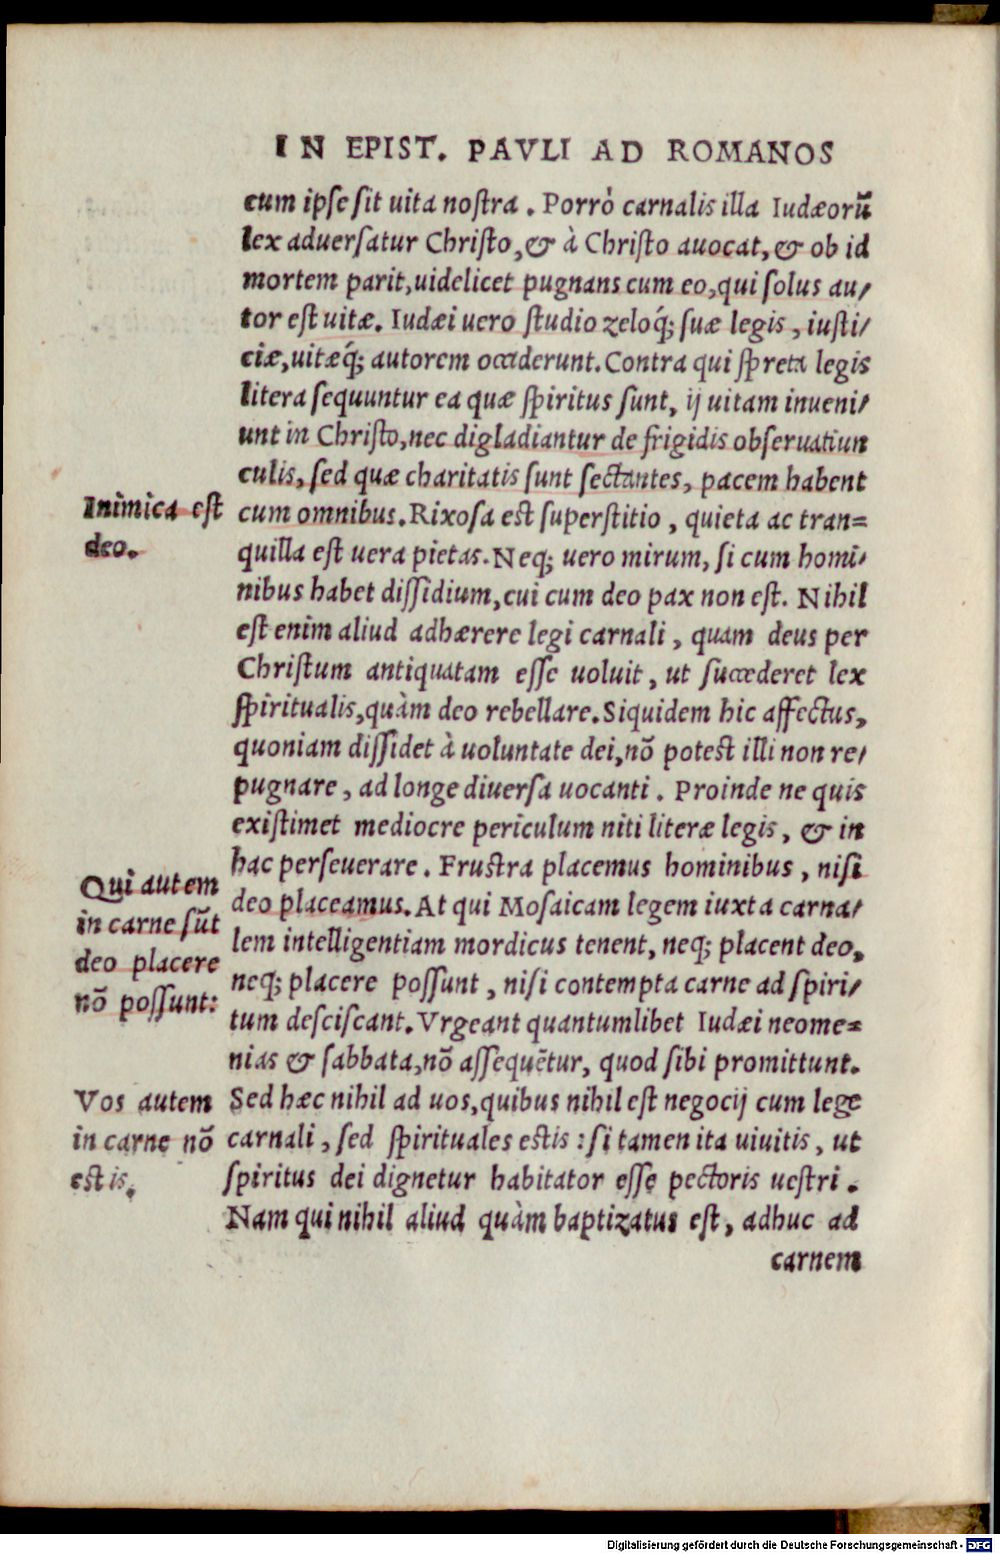 IN EPIST. PAVLI AD ROMANOS
cum ipse sit uita nostra. Porrò carnalis illa Iudæorũ
lex aduersatur Christo, & à Christo auocat, & ob id
mortem parit, uidelicet pugnans cum eo, qui solus au/
tor est uitæ. Iudæi uero studio zeloq́; suæ legis, iusti/
ciæ, uitæq́; autorem occiderunt. Contra qui spreta legis
litera sequuntur ea quæ spiritus sunt, ij uitam inueni/
unt in Christo, nec digladiantur de frigidis obseruatiun
culis, sed quæ charitatis sunt sectantes, pacem habent
Inimica est
deo.
cum omnibus. Rixosa est superstitio, quieta ac tran=
quilla est uera pietas. Neq; uero mirum, si cum homi/
nibus habet dissidium, cui cum deo pax non est. Nihil
est enim aliud adhærere legi carnali, quam deus per
Christum antiquatam esse uoluit, ut succederet lex
spiritualis, quàm deo rebellare. Siquidem hic affectus,
quoniam dissidet à uoluntate dei, nõ potest illi non re/
pugnare, ad longe diuersa uocanti. Proinde ne quis
existimet mediocre periculum niti literæ legis, & in
hac perseuerare. Frustra placemus hominibus, nisi
Qui autem
in carne sũt
deo placere
nõ possunt:
deo placeamus. At qui Mosaicam legem iuxta carna/
lem intelligentiam mordicus tenent, neq; placent deo,
neq; placere possunt, nisi contempta carne ad spiri/
tum desciscant. Vrgeant quantumlibet Iudæi neome=
nias & sabbata, nõ assequẽtur, quod sibi promittunt.
Vos autem
in carne nõ
estis.
Sed hæc nihil ad uos, quibus nihil est negocij cum lege
carnali, sed spirituales estis: si tamen ita uiuitis, ut
spiritus dei dignetur habitator esse pectoris uestri.
Nam qui nihil aliud quàm baptizatus est, adhuc ad
carnem
Digitalisierung gefördert durch die Deutsche Forschungsgemeinschaft - DFG